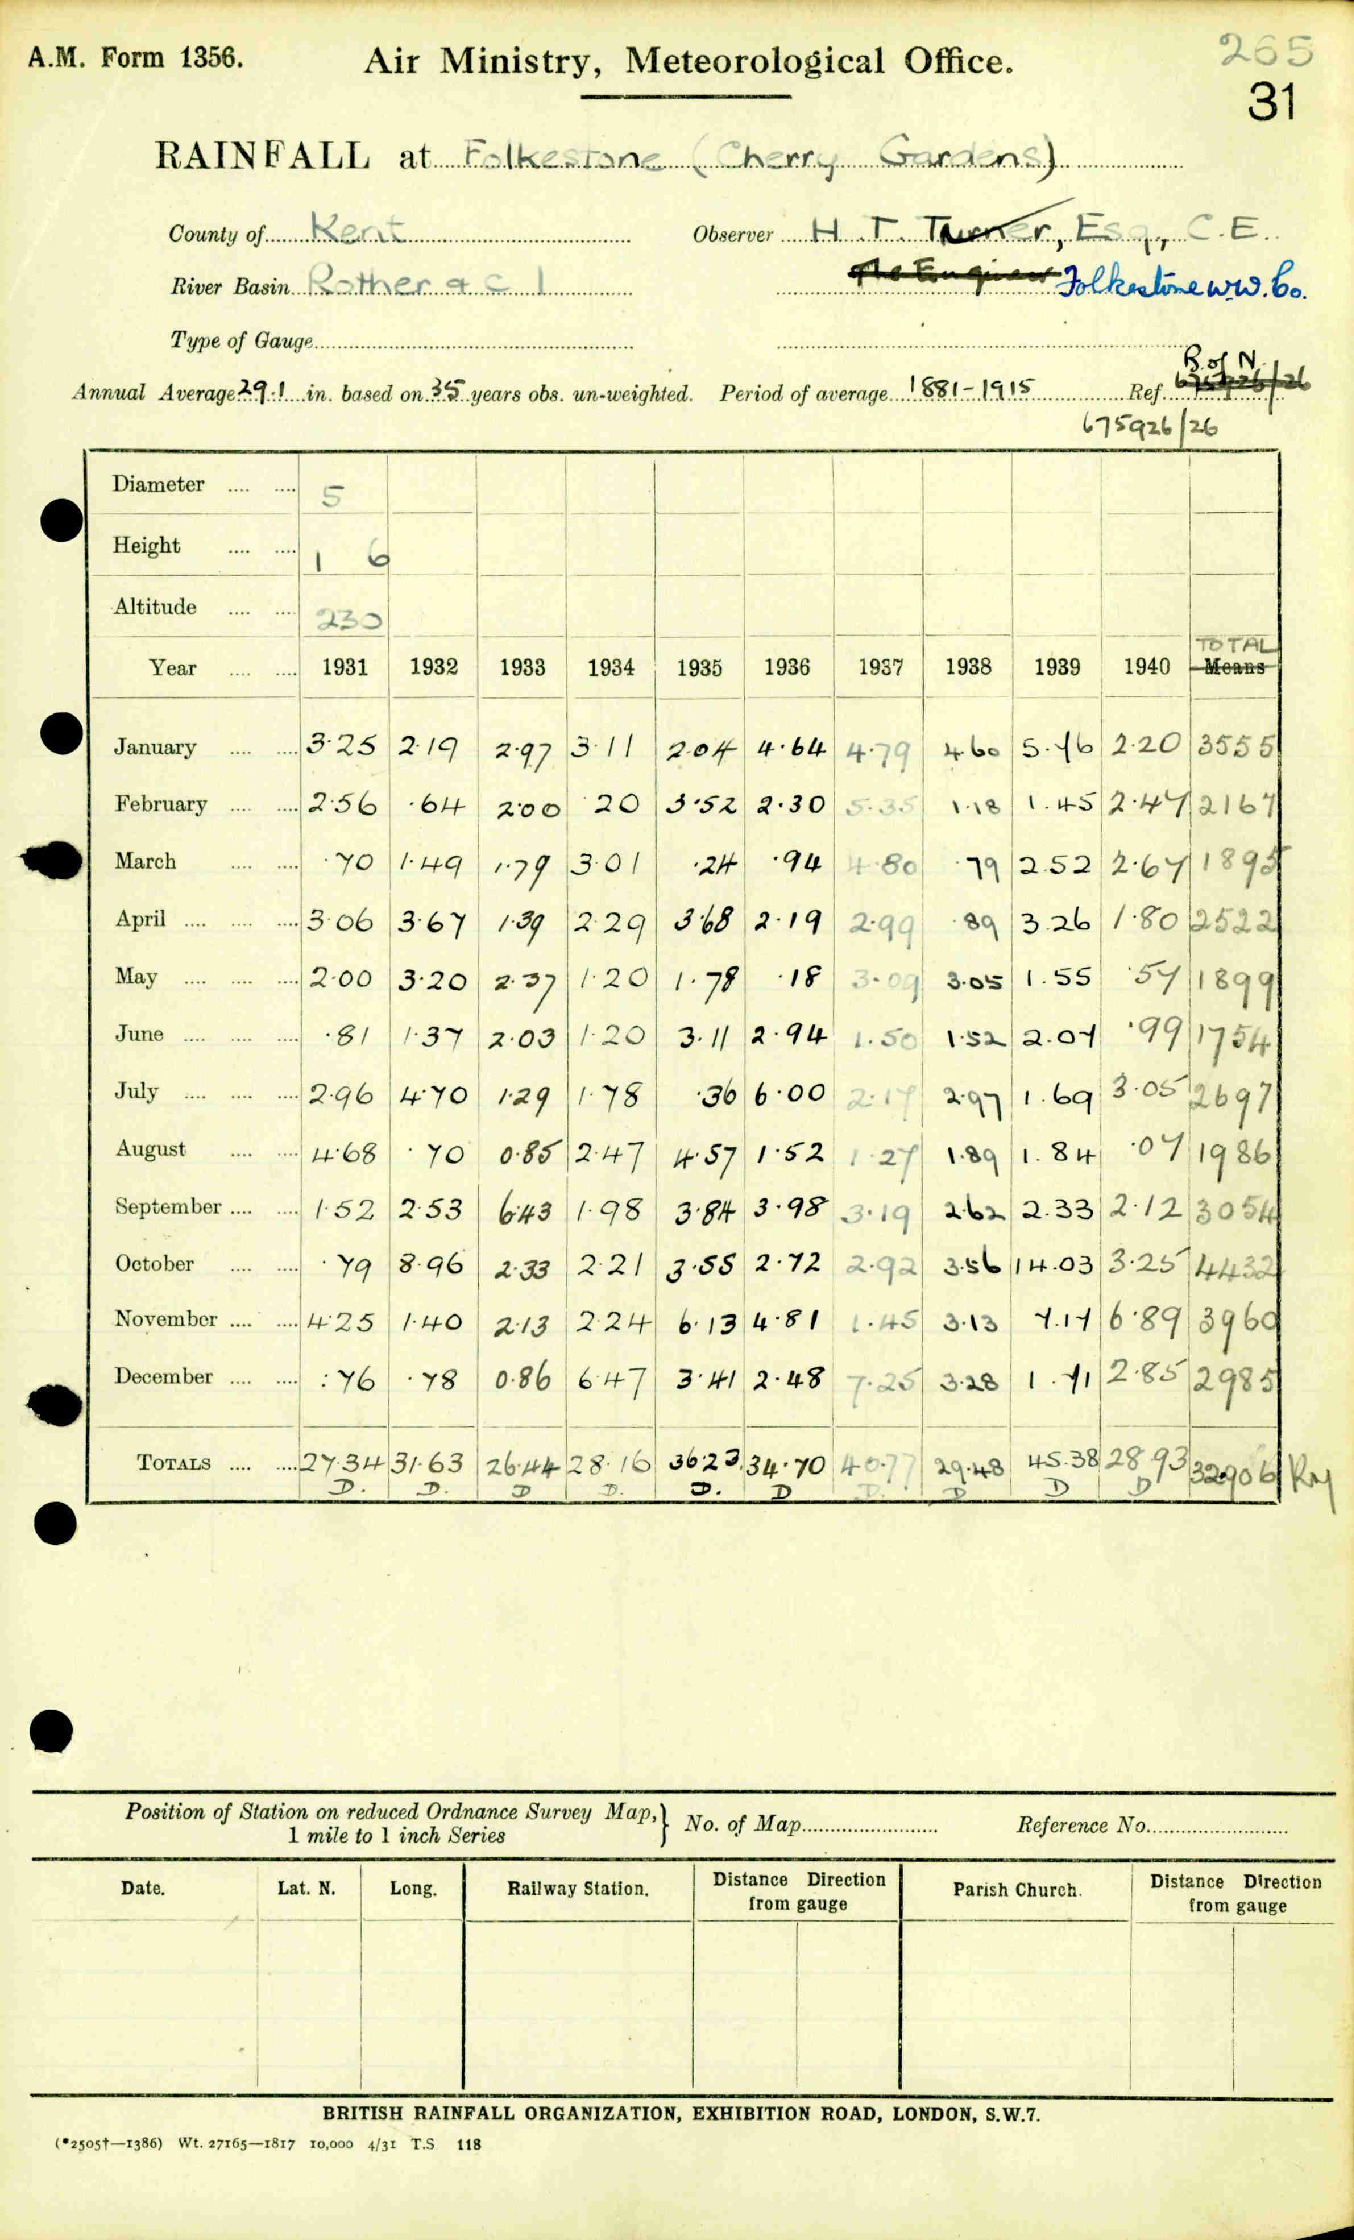 A.M. Form 1356.
Air Ministry, Meteorological Office.
265
31
RAINFALL at Folkestone (Cherry Gardens)
County of Kent
Observer H. T. Turner, Esq., C.E.
River Basin Rother & C 1
The Engineer Folkestone W.W. Co.
Type of Gauge
R of N
Annual Average 29.1 in. based on 35 years obs. un-weighted. Period of average 1881-1915 Ref.
675926/26
Diameter 5
Height 1 6
Altitude 230
TOTAL
Year 1931 1932 1933 1934 1935 1936 1937 1938 1939 1940 Means
January 3.25 2.19 2.97 3.11 2.04 4.64 4.79 4.60 5.76 2.20 3555
February 2.56 .64 2.00 .20 3.52 2.30 5.35 1.18 1.45 2.47 2167
March .70 1.49 1.79 3.01 .24 .94 4.80 .79 2.52 2.67 1895
April 3.06 3.67 1.39 2.29 3.68 2.19 2.99 .89 3.26 1.80 2522
May 2.00 3.20 2.37 1.20 1.78 .18 3.09 3.05 1.55 .57 1899
June .81 1.37 2.03 1.20 3.11 2.94 1.50 1.52 2.07 .99 1754
July 2.96 4.70 1.29 1.78 .36 6.00 2.17 2.97 1.69 3.05 2697
August 4.68 .70 0.85 2.47 4.57 1.52 1.27 1.89 1.84 .07 1986
September 1.52 2.53 6.43 1.98 3.84 3.98 3.19 2.62 2.33 2.12 3054
October .79 8.96 2.33 2.21 3.55 2.72 2.92 3.56 14.03 3.25 4432
November 4.25 1.40 2.13 2.24 6.13 4.81 1.45 3.13 7.17 6.89 3960
December .76 .78 0.86 6.47 3.41 2.48 7.25 3.28 1.71 2.85 2985
TOTALS 27.34 31.63 26.44 28.16 36.23 34.70 40.77 29.48 45.38 28.93 32906
D. D. D D. D. D D. D D D
Position of Station on reduced Ordnance Survey Map,} No. of Map Reference No.
1 mile to 1 inch Series
Date. Lat. N. Long. Railway Station. Distance Direction from gauge Parish Church. Distance Direction from gauge
BRITISH RAINFALL ORGANIZATION, EXHIBITION ROAD, LONDON, S.W.7.
(*2505†—1386) Wt. 27165—1817 10,000 4/31 T.S 118